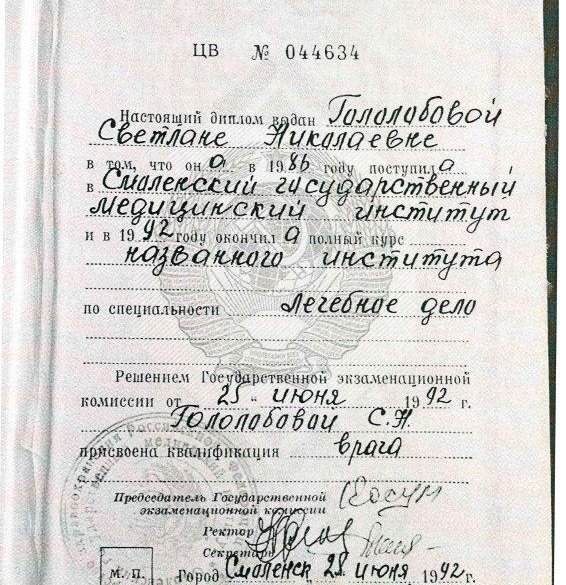 ЦВ № 044634
Настоящий диплом выдан Гололобовой
Светлане Николаевне
в том, что она в 1986 году поступила
в Смоленский государственный
медицинский институт
и в 1992 году окончила полный курс
названного института
по специальности лечебное дело
Решением Государственной экзаменационной
комиссии от 25 „ июня 1992 г.
Гололобовой С.Н.
присвоена квалификация врача
Председатель Государственной
экзаменационной комиссии
Ректор
Секретарь
М. П. Город Смоленск, 25 июня 1992 г.